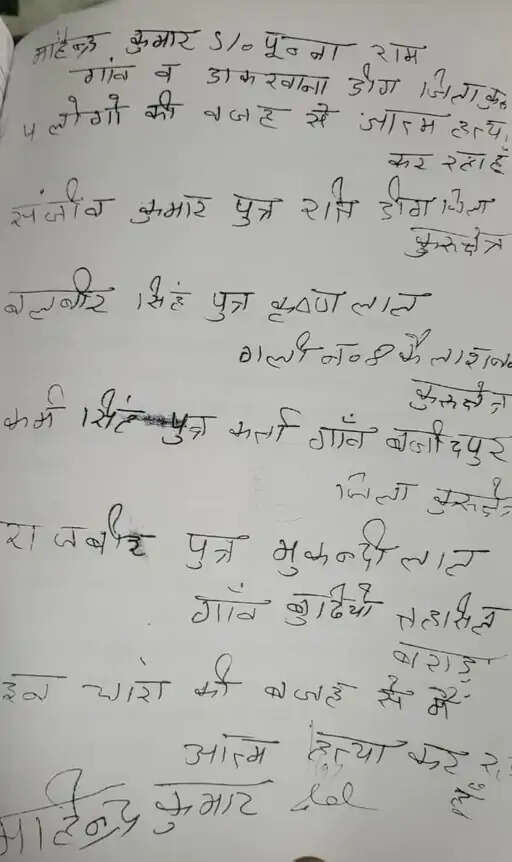 माहेन्द्र कुमार S/o पून्ना राम
गांव व डाकखाना डीग जिला कुरु
५ लोगो की वजह से आत्म हत्या
कर रहा हूँ
संजीव कुमार पुत्र राज डीग जिला
कुरुक्षेत्र
बलबीर सिंह पुत्र कृष्ण लाल
गली न० 8 कैलाश नग
कुरुक्षेत्र
कर्म सिंह पुत्र कर्ता गाँव बजीदपुर
जिला कुरुक्षेत्र
राजबीर पुत्र मुकन्दी लाल
गाँव बुढियाँ तहसिल
बराड़ा
इन चारो की वजह से मैं
आत्म हत्या कर र
हूँ
माहेन्द्र कुमार